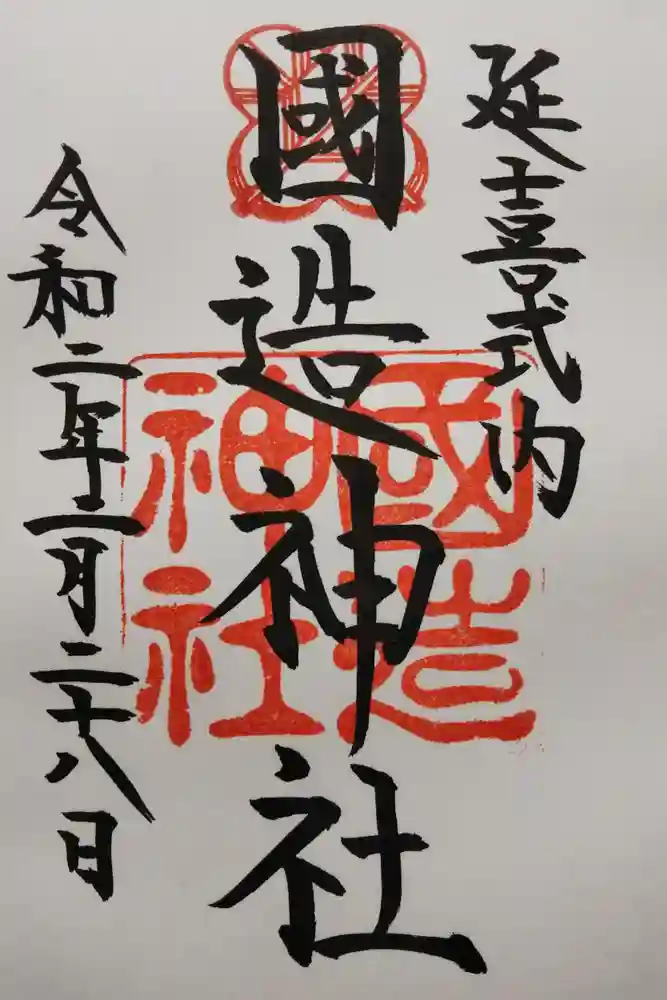 延喜式内
國造神社
國造神社
令和二年二月二十八日